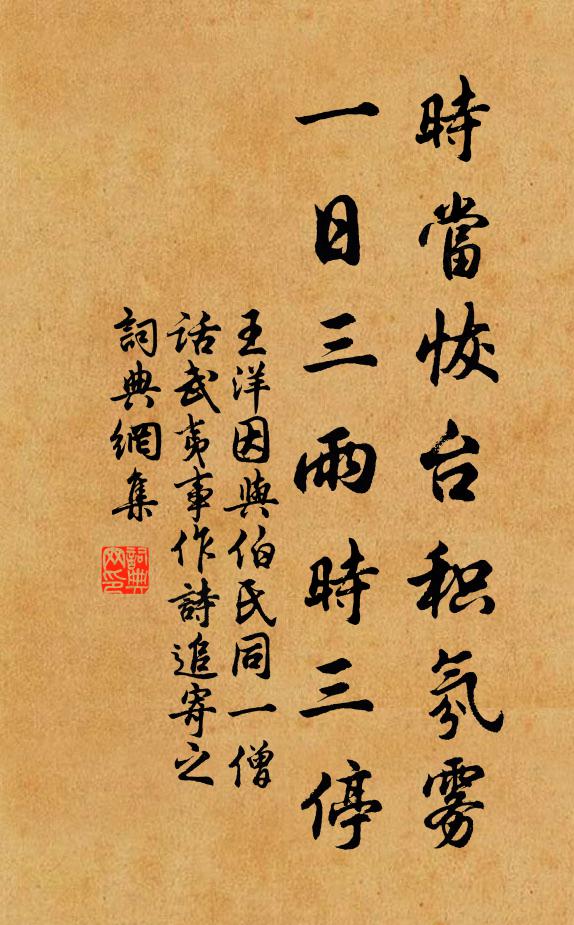 時當恢台积氛雾
一日三雨時三停
王洋因與伯氏同一僧
话武夷事作詩追寄之
詞典網集
詞典
网印